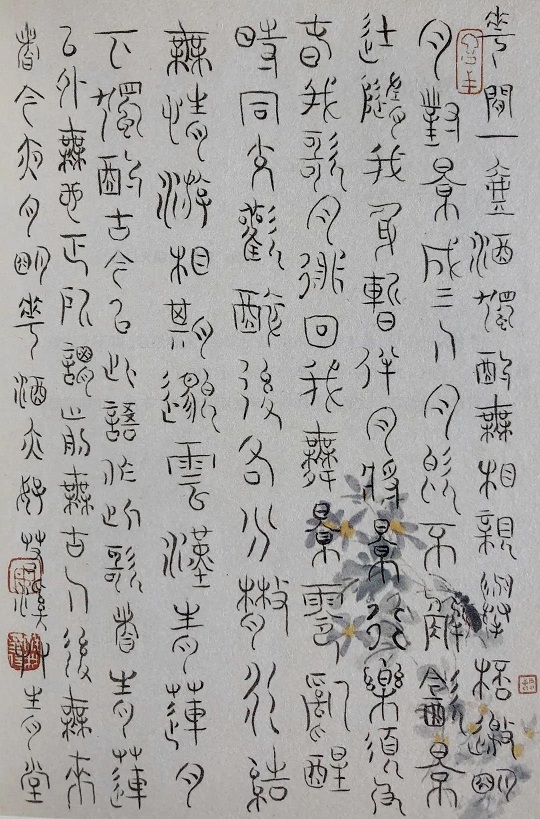 華間一壺酒獨酌無相親舉桮邀明
月對景成三人月既不解飲景
徒隨我身暫伴月將景行樂須及
春我歌月徘回我舞景零亂醒
時同交歡醉後各分散永結
無情游相期邈雲漢青蓮月
下獨酌古今以此語作此歌者青蓮
以外無也正所謂前無古人後無來
者今夜月明華酒亦好青堂